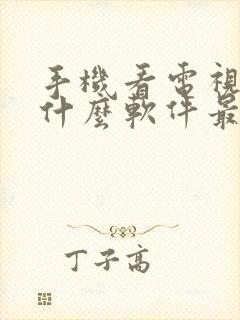 手機看電視
什麼軟件最
丁子高